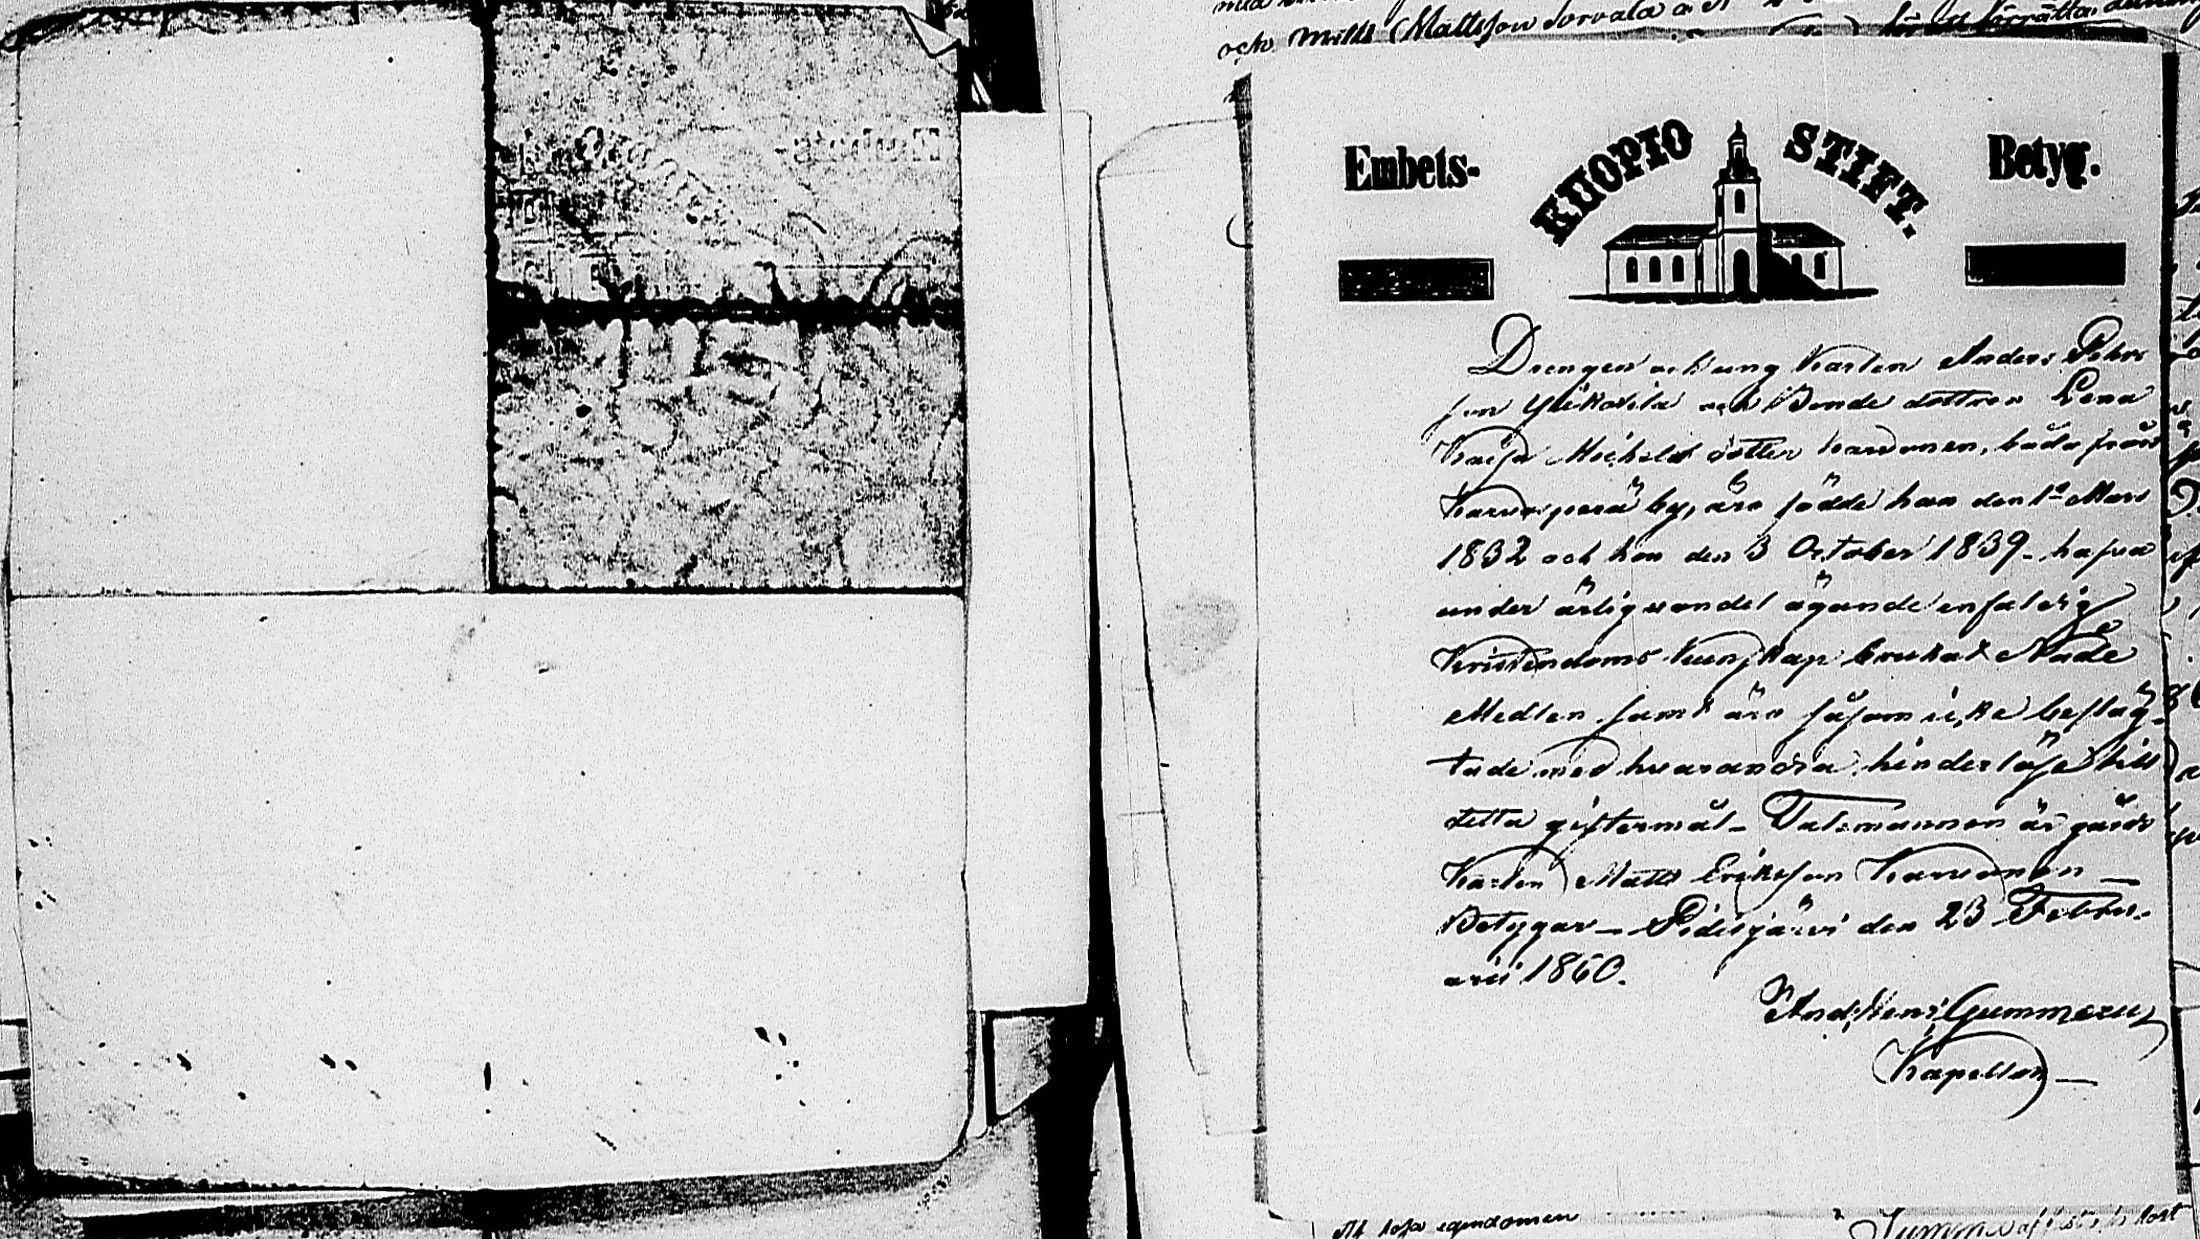 och Matts Mattsson Sorvala
Embets- KUOPIO STIFT. Betyg.
Drengen ock ung Karlen Anders Pehrs
son Ylikotila och Bonde dottren Lena
Kaisa Michels dotter Karvonen, båda från
Karvosperä by, äro födde han den 1a Mars
1832 och hon den 3 October 1839 - hafva
under ärlig vandel ägande enfaldig
Kristendoms kunskap brukat Nåde
Medlen samt äro såsom icke beslägtade
tade med hvarandra hinderlösa till
detta giftermål - Talsmannen är gårds
Karlen Matts Eriksson Karvonen -
Betygar - Pidisjärvi den 23 Febru-
arii 1860.
And: Henr: Gummerus
Kapellan -
egendomen